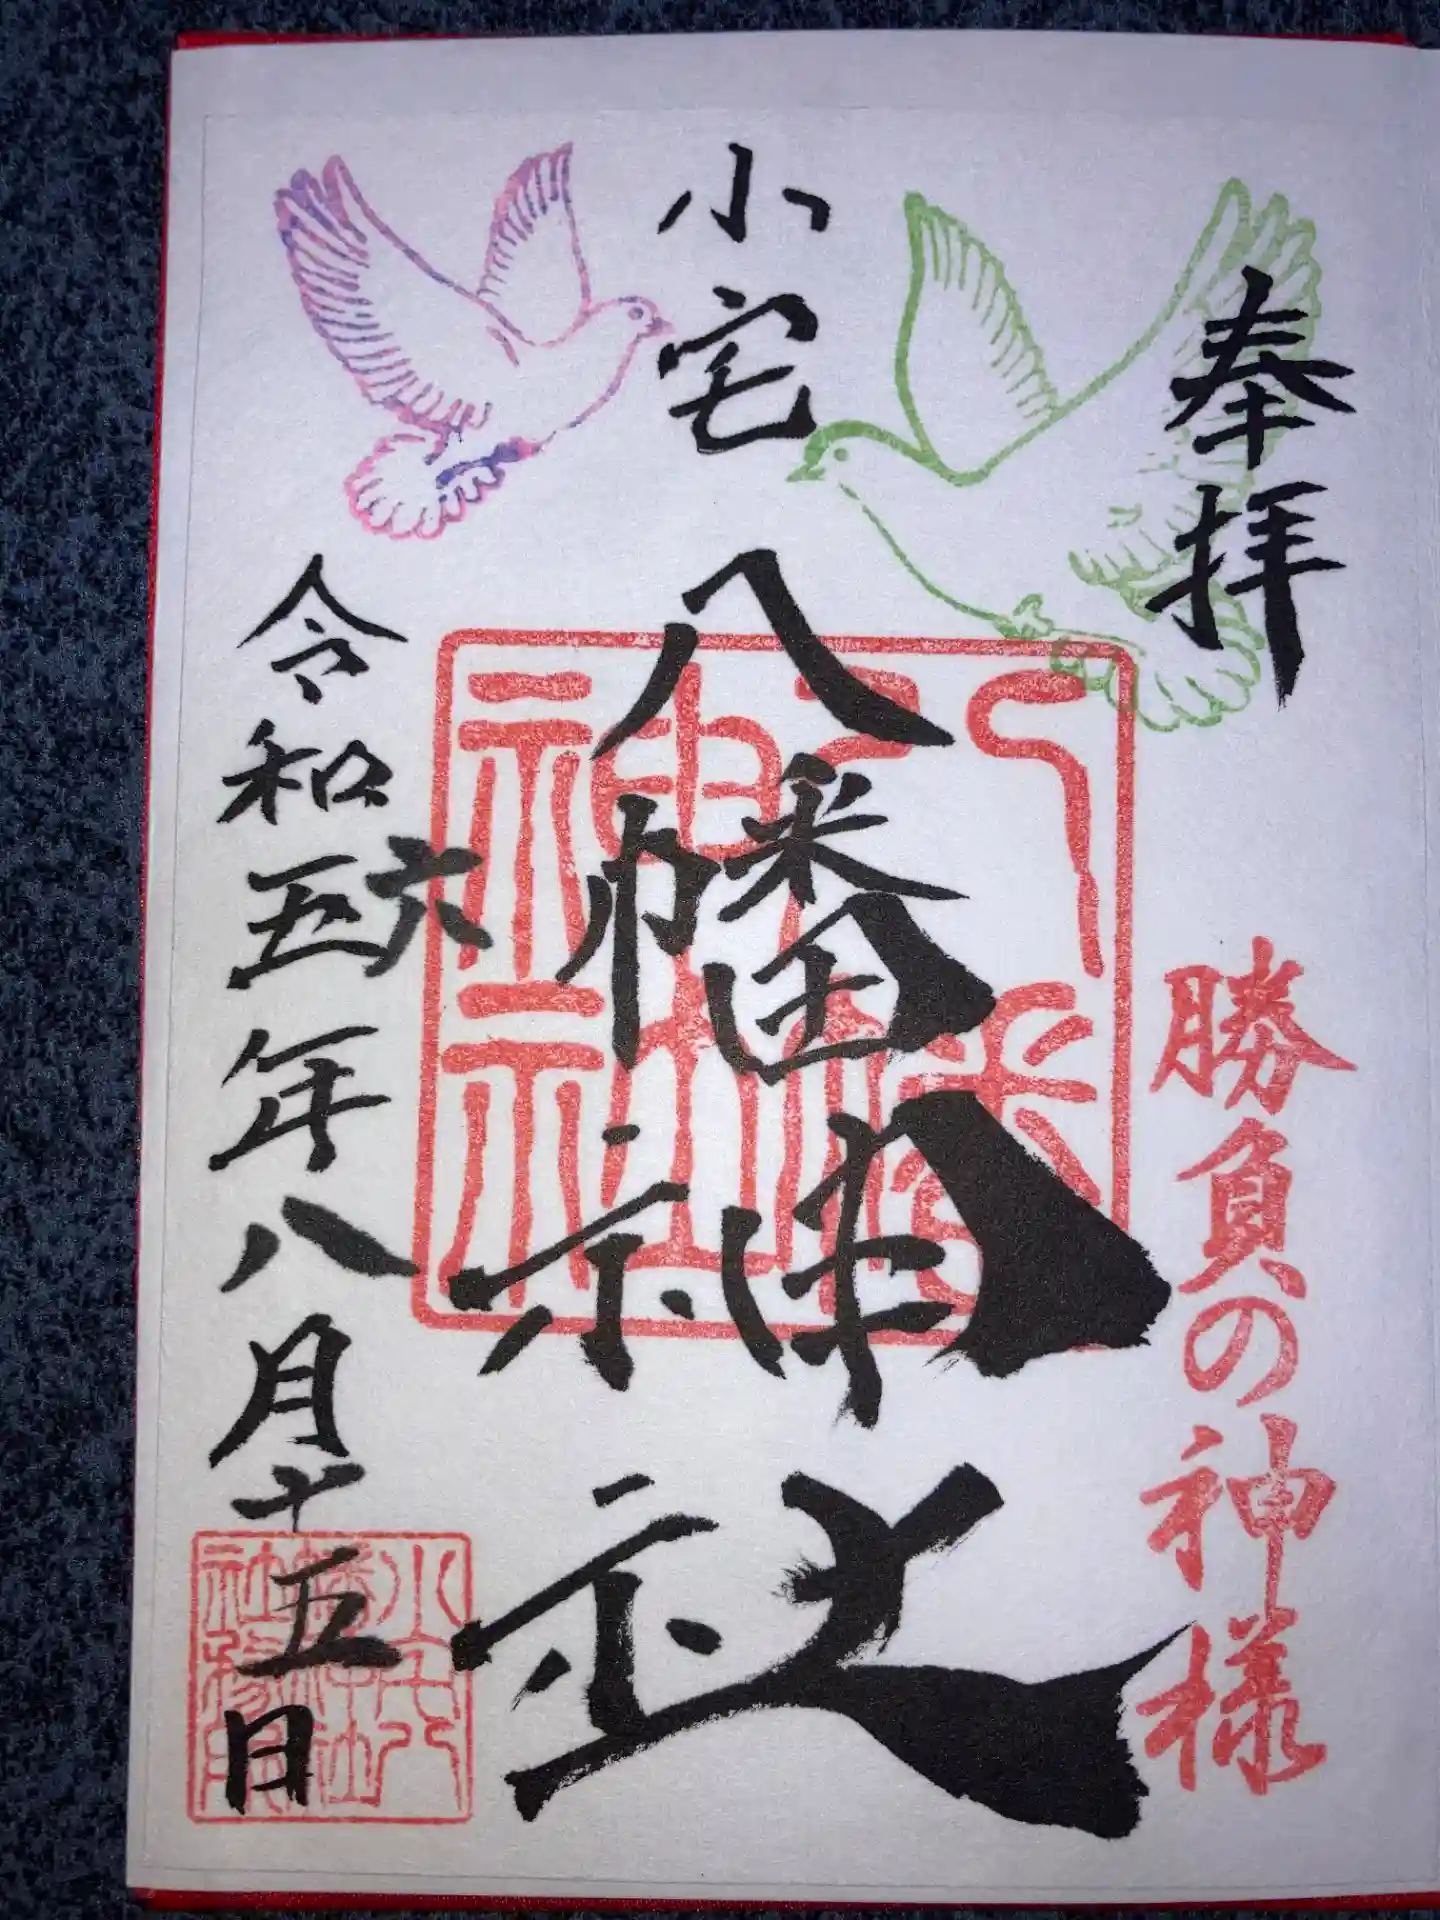 奉拝
勝負の神様
小宅
八幡神社
八幡神社
令和五六年八月十五日
小宅八幡神社務所